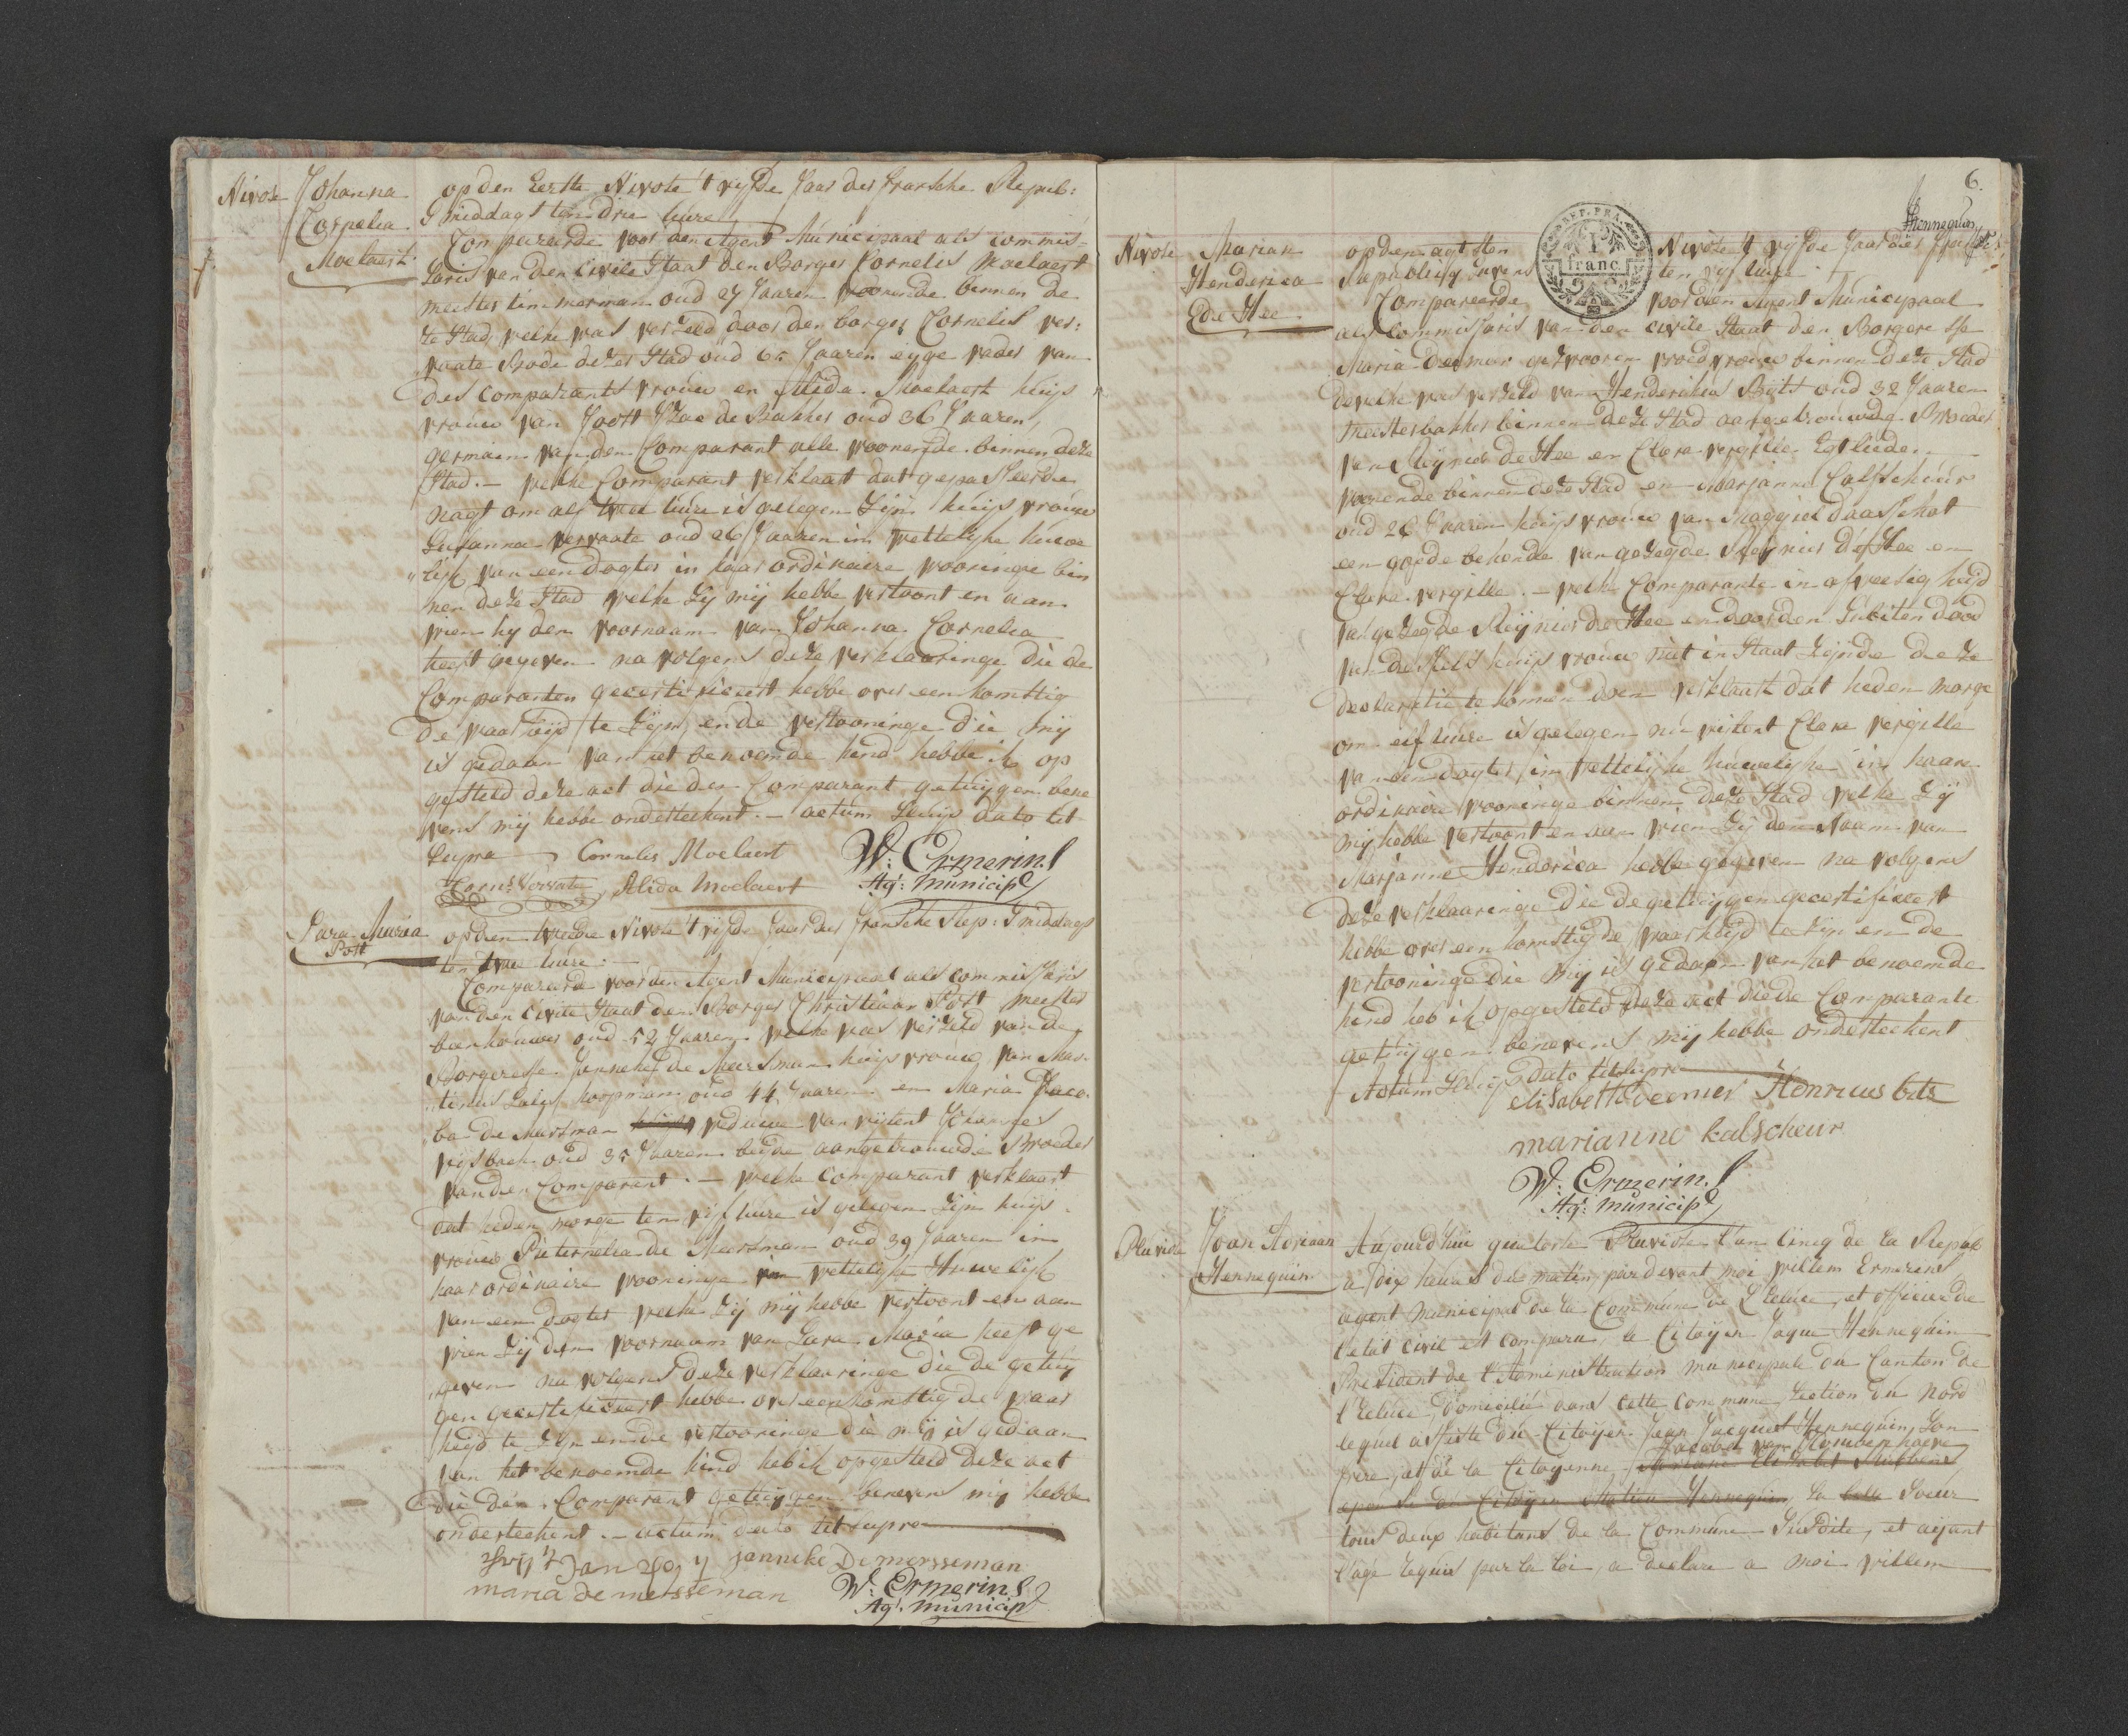 Nivose Johanna Cornelia Moelaert
op den Eerste Nivose t vijfde Jaar der fransche Repub:
S middags ten drie uure
Compareerde voor den Agent Municipaal als commis=
saris van den Civile Staat den Borger Cornelis Moelaert
meester timmerman oud 27 Jaaren woonende binnen de
ze Stad, welke was verzeld door den borger Cornelis ver:
vaate Bode dezer Stad oud 65 Jaaren eyge vader van
des comparants vrouw en Alida Moelaert huys
vrouw van Joost Izac de Bakker oud 36 Jaaren,
germain van den Comparant alle woonende binnen deze
Stad. — welke Comparant verklaart dat gepasseerde
nagt om alf twee uure is gelegen Zijn huys vrouw
Susanna vervaate oud 26 Jaaren in wettelyke huwe
lijk van een dogter in haar ordinaire wooninge bin
nen deze Stad welke Zij mij hebbe vertoont en aan
wien hy den voornaam van Johanna Cornelia
heeft gegeven na volgens deze verklaaringe die de
Comparanten gecertificeert hebbe over een komstig
de waarheijd te Zijn, ende vertooninge die mij
is gedaan van het benoemde kind hebbe ik op
gesteld deze act die den Comparant getuygen bene
vens mij hebbe ondertekent. — actum Sluijs dato ut
Supra Cornelis Moelaert W: Ermerins
Corns. Vervate Alida Moelaert Ag: Municip
Sara Maria Post
op den twede Nivose t vijfde Jaar der fransche Rep: S middags
ten twee uure: —
Compareerde voor den Agent Municipaal als commissaris
van den Civile Staat den Borger Christiaan Post meester
beenhouwer oud 52 Jaaren welke was verzeld van de
Borgeresse Janneke de Meersman huys vrouw van Mar
tinus koopman oud 44 Jaaren en Maria Jaco
ba de Mersman weduwe van wijlent Johannes
oud 35 Jaaren beyde aangetrouwde Broeder
van den Comparant. — welke comparant verklaart
dat heden morge ten vijf uure is gelegen Zijn huys
vrouw Pieternelia de Meersman oud 39 Jaaren in
haar ordinaire wooninge wettelijk Huwelijk
van een dogter welke Zij mij hebbe vertoont en aan
wien Zij den voornaam van Sara Maria heeft ge
geven na volgens deze verklaaringe die de getuy
gen gecertificeert hebbe over een komstig de waar
heijd te Zijn ende vertooninge die mij is gedaan
van het benoemde kind heb ik opgesteld deze act
die den Comparant getuygen benevens mij hebbe
ondertekent. — actum dato ut supra
janneke Demersseman
maria de mersseman W: Ermerins
Ag: Municip
6.
Hennequin
Nivose Marian Henderica De Hee
op den agtsten Nivose t vijfde Jaar der
Republicq ten vijf uure
Compareerde voor den Agent Municipaal
als Commissaris van den civile Staat den Borgeresse
Maria Deemer gezwooren vroedvrouw binnen deze Stad
dewelke was verzeld van Henderikus Bits oud 32 Jaaren
meester bakker binnen deze Stad aangetrouwde Broeder
van Reijnier de Hee en Clara vergille Egtlieden
woonende binnen deze Stad en Marjanne Calfscheur
oud 26 Jaaren huys vrouw van Maggiel daasschot
een goede bekende van gezegde Reijnier de Hee en
Clara vergille. — welke Comparante in afwezigheijd
van gezegde Reijnier de Hee en door den Subiten dood
van deszelfs huys vrouw niet in Staat Zijnde deze
declaratie te komen doen verklaart dat heden morge
om elf uure is gelegen nu wijlent Clara vergille
van een dogter, in wettelijke huwelijke in haare
ordinaire wooninge binnen deze Stad welke Zij
mij hebbe vertoont en aan wien Zij den Naam van
Marjanne Henderica hebbe gegeven na volgens
deze verklaaringe die de getuijgen gecertificeert
hebbe over een komstig de waarheijd te Zijn en de
vertooninge die mij is gedaan van het benoemde
kind heb ik opgesteld deze act die de Comparante
getuijgen benevens mij hebbe ondertekent
Actum Sluijs dato ut Supra
elisabeth deemer Henricus bits
marianne kalscheur
W: Ermerins
Ag: Municip
Pluviose Joan Adriaan Hennequin
Aujourd'hui quatorse Pluviose l'an Cincq de la Repub
a Dix heures du matin, par devant moi Willem Ermerins
agent municipal de la Commune de L'Ecluse, et officier de
l'etat Civil est comparu, le Citoyen Jaque Hennequin
President de l'Administration municipale du Canton de
l'Ecluse, domicilié dans cette commune, Section du Nord
lequel assisté du Citoyen Jean Jacques Hennequin, Son
frere, et de la Citoyenne
epouse du Citoyen Hennequin, Sa belle Soeur
tous deux habitans de la Commune Susdite, et aijant
l'age requis par la loi, a declare a moi willem